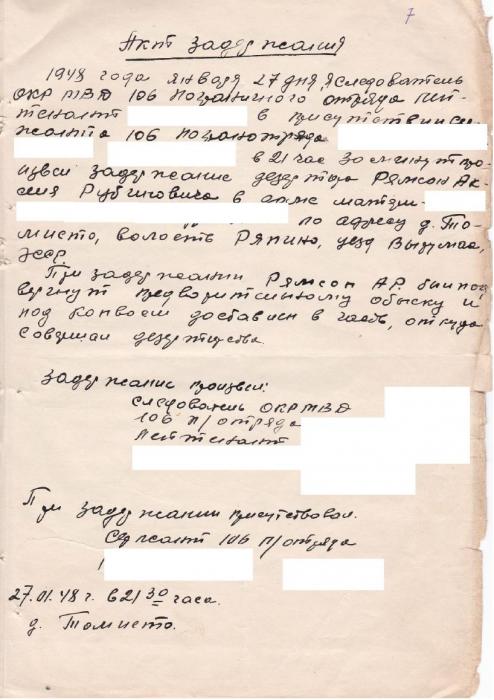 7
Акт задержания
1948 года января 27 дня, я следователь
ОКР МВД 106 пограничного отряда лей-
тенант в присутствии се
жанта 106 погранотряда
в 21 час 30 минут про
извел задержание дезертира Рямсон Ак-
селя Рубиновича в
по адресу д. То-
мисто, волость Ряпино, уезд Вырумаа,
ЭССР.
При задержании Рямсон А.Р. был под
вергнут предварительному обыску и
под конвоем доставлен в часть, откуда
совершил дезертирство.
Задержание произвел:
Следователь ОКР МВД
106 п/отряда
Лейтенант
При задержании присутствовал.
Сержант 106 п/отряда
27.01.48 г. в 21 30 часа.
д. Томисто.